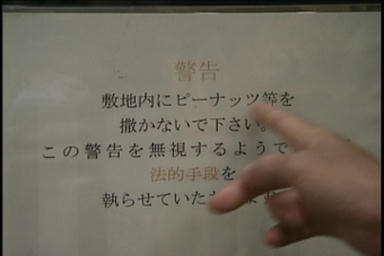 警告
敷地内にピーナッツ等を
撒かないで下さい。
この警告を無視するようで
法的手段を
執らせていただ